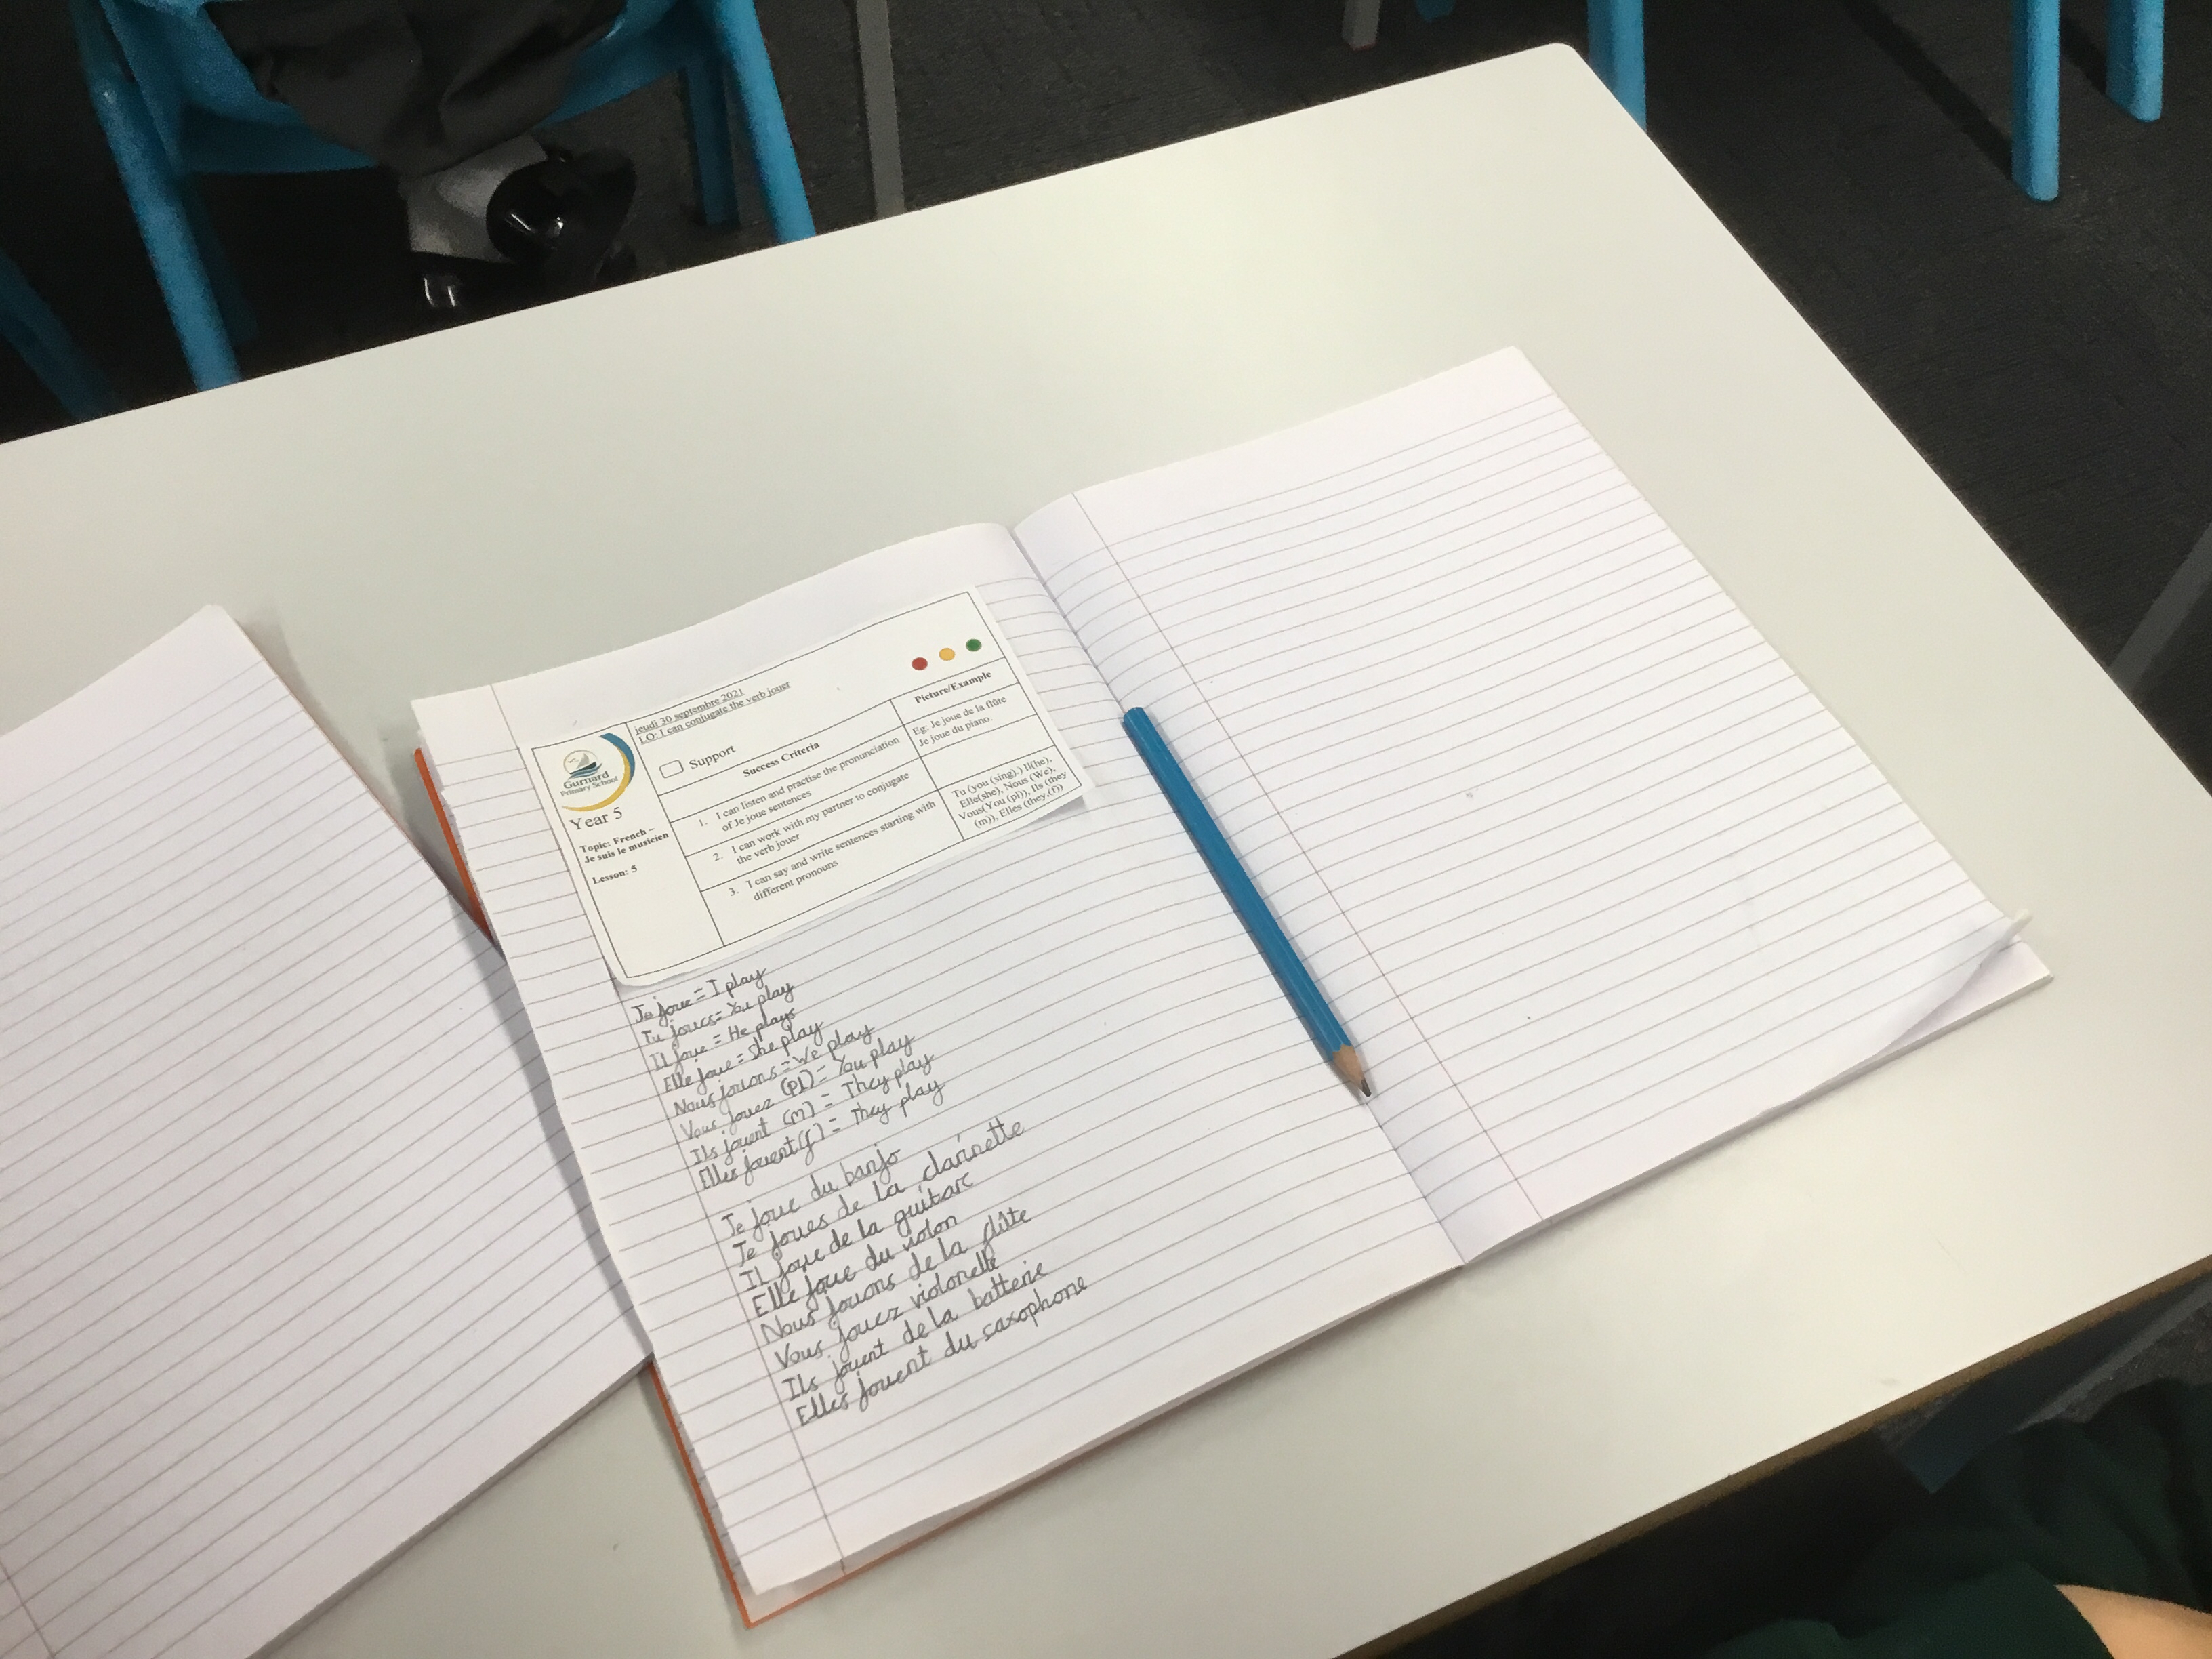 jeudi 30 septembre 2021
LO: I can conjugate the verb jouer
Gurnard
Primary School
Year 5
Topic: French –
Je suis le musicien
Lesson: 5
Support
Success Criteria
Picture/Example
1. I can listen and practise the pronunciation
of Je joue sentences
Eg: Je joue de la flûte
Je joue du piano.
2. I can work with my partner to conjugate
the verb jouer
3. I can say and write sentences starting with
different pronouns
Tu (you (sing),) Il(he),
Elle(she), Nous (We),
Vous(You (pl)), Ils (they
(m)), Elles (they,(f))
Je joue = I play
Tu joues = You play
Il joue = He plays
Elle joue = She play
Nous jouons = We play
Vous jouez (pl) = You play
Ils jouent (m) = They play
Elles jouent (f) = They play
Je joue du banjo
Je joues de la clarinette
Il joue de la guitare
Elle joue du violon
Nous jouons de la flûte
Vous jouez violonelle
Ils jouent de la batterie
Elles jouent du saxophone